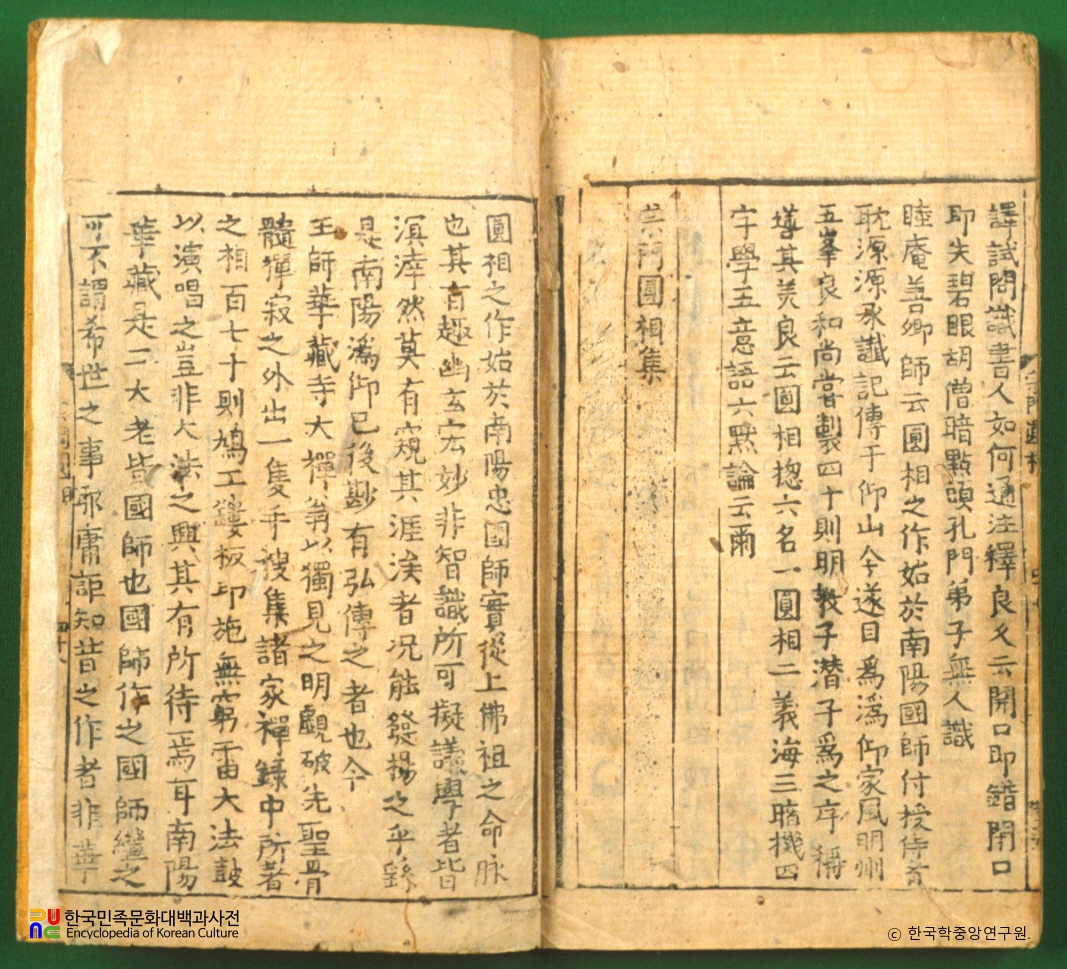 譯試問識書人如何通注釋良久云開口即錯閉口
即失碧眼胡僧暗點頭孔門弟子無人識
睦庵善卿師云圓相之作始於南陽國師付授侍者
耽源源承讖記傳于仰山今遂目爲潙仰家風明州
五峯良和尚嘗製四十則明教子潛子爲之序稱
導其美良云圓相摠六名一圓相二義海三暗機四
字學五意語六默論云爾
宗門圓相集
圓相之作始於南陽忠國師實從上佛祖之命脉
也其旨趣幽玄宏妙非智識所可擬議學者皆
溟涬然莫有窺其涯涘者况能發揚之乎繇
是南陽潙仰已後尠有弘傳之者也今
王師華藏寺大禪翁以獨見之明覰破先聖骨
髓禪寂之外出一隻手搜集諸家禪錄中所著
之相百七十則鳩工鏤板印施無窮雷大法鼓
以演唱之豈非大法之興其有所待焉耳南陽
華藏是二大老皆國師也國師作之國師繼之
可不謂希世之事耶庸詎知昔之作者非華
四十八
한국민족문화대백과사전
Encyclopedia of Korean Culture
ⓒ 한국학중앙연구원.